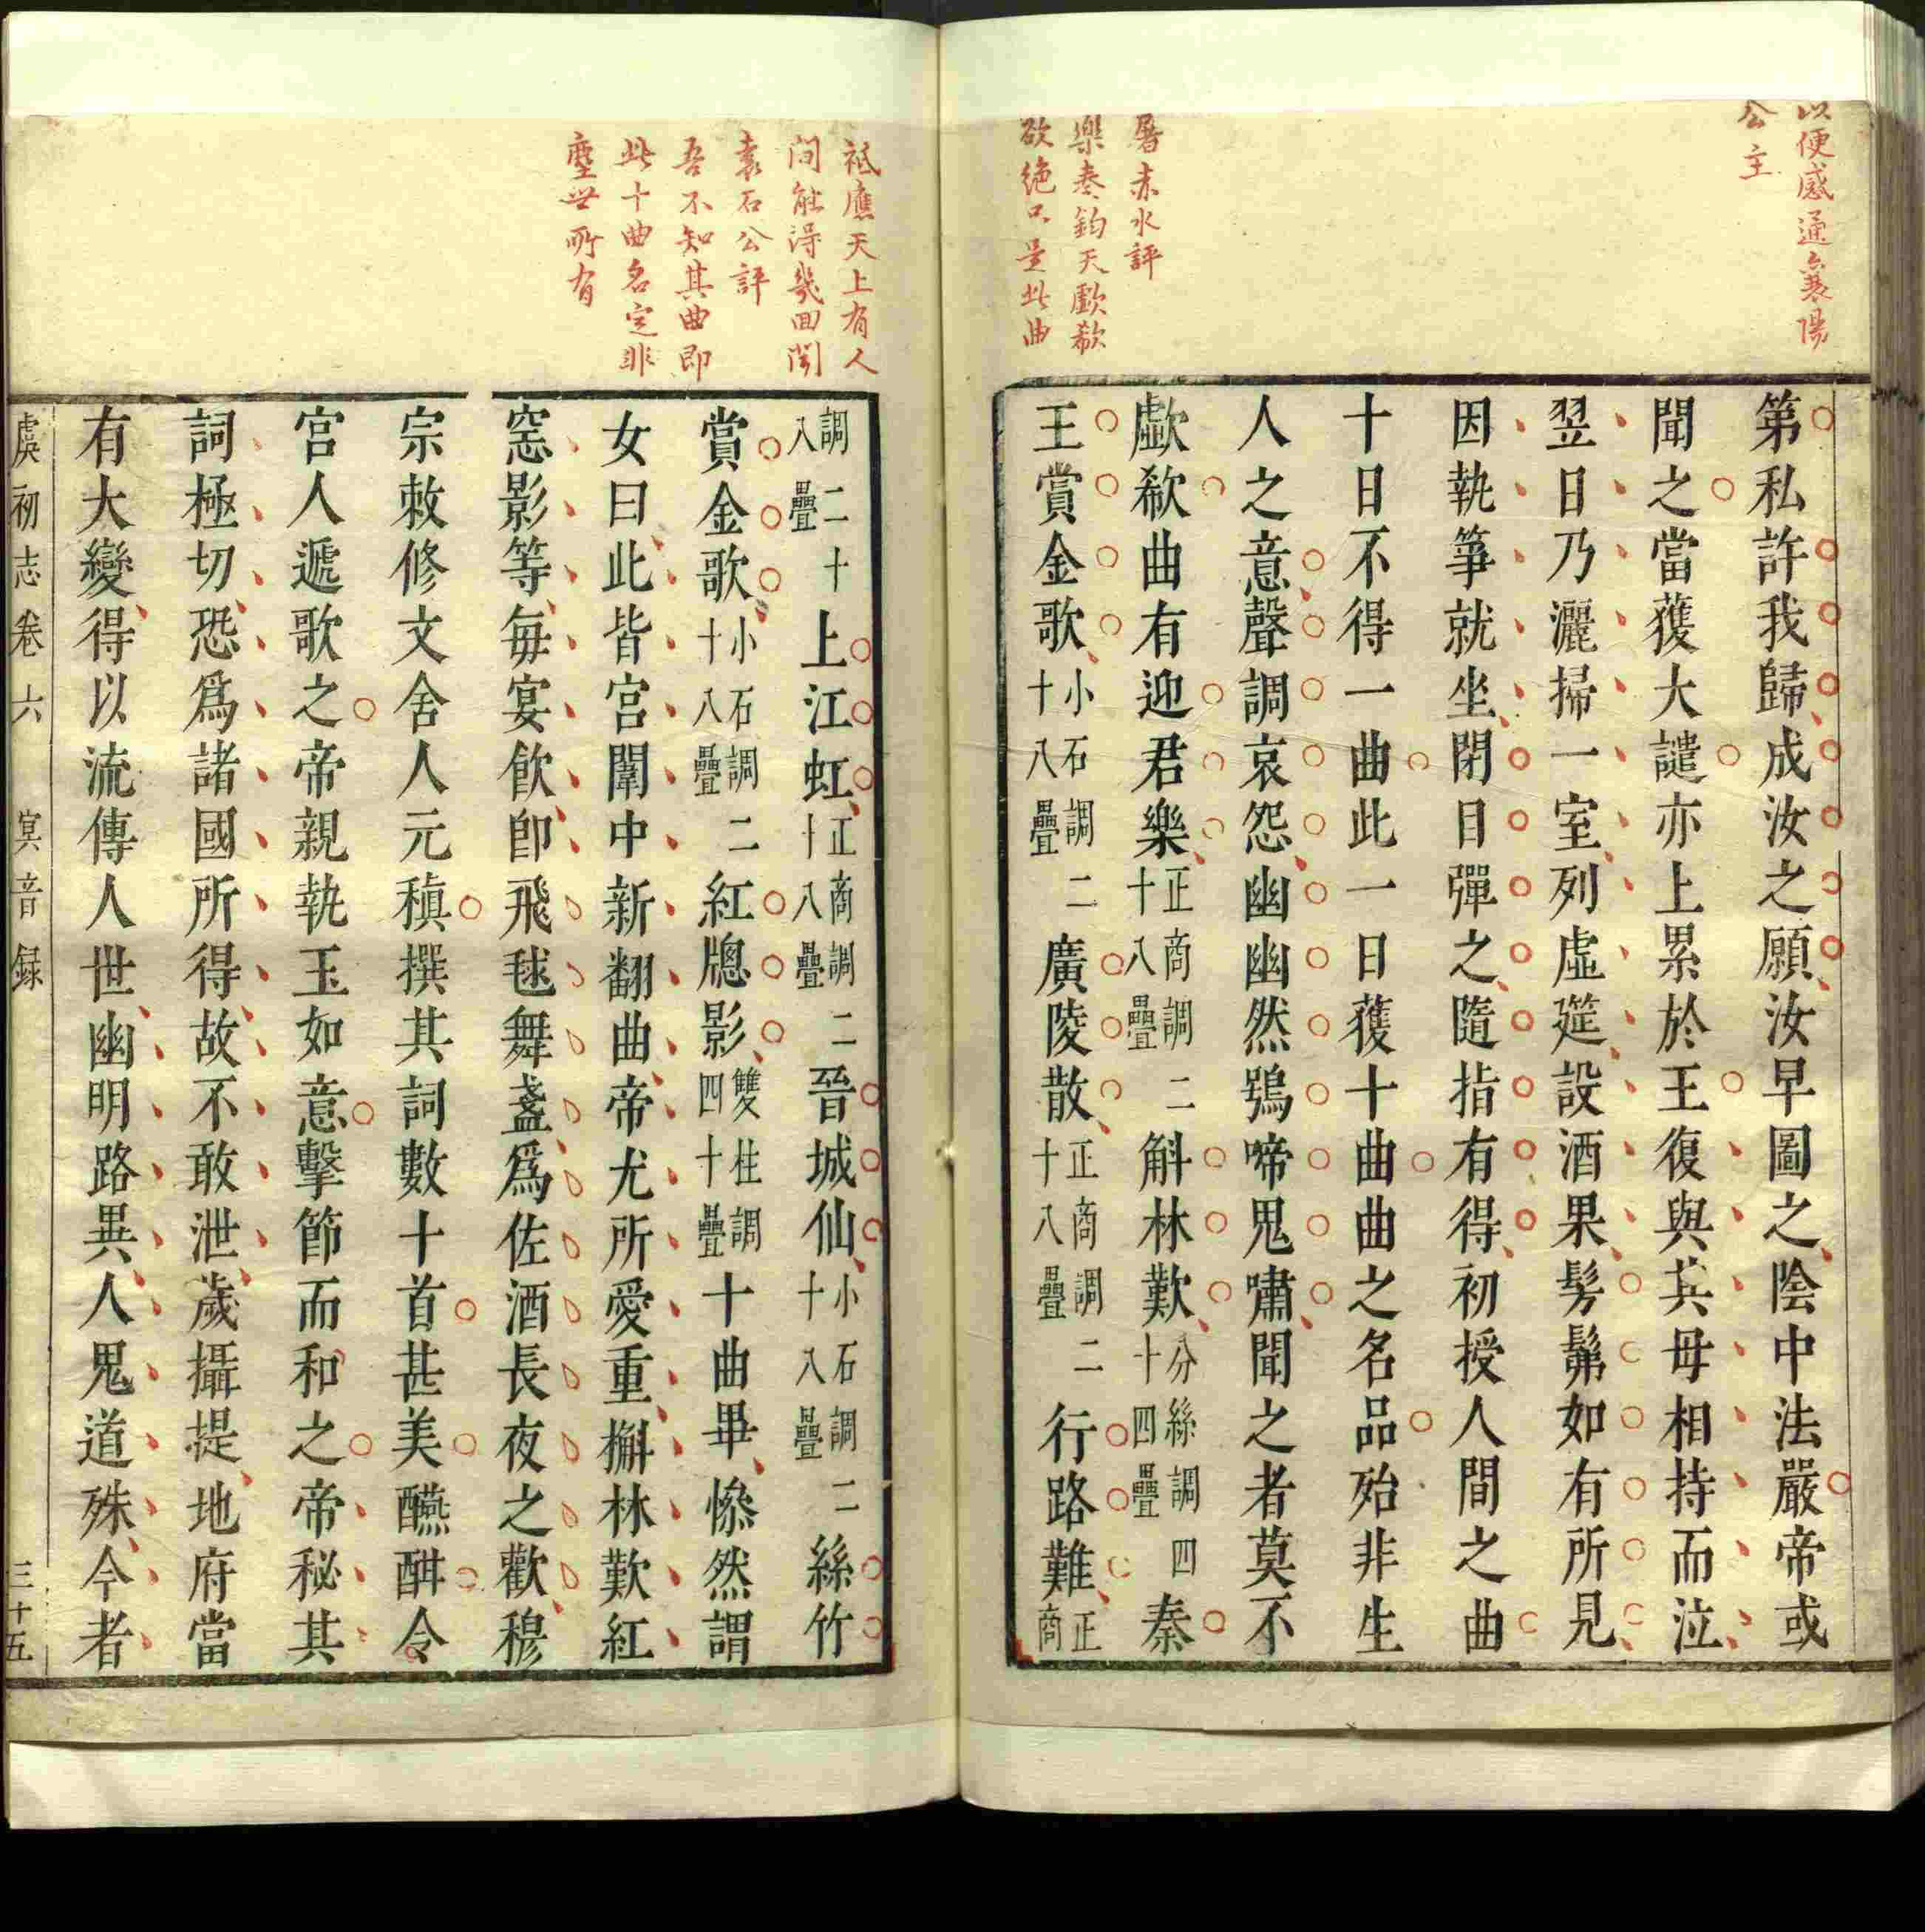 以便感通襄陽
公主
屠赤水評
樂奏鈞天歔欷
欲絶只是此曲
第私許我歸成汝之願汝早圖之陰中法嚴帝或
聞之當獲大譴亦上累於王復與其母相持而泣
翌日乃灑掃一室列虛筵設酒果髣髴如有所見
因執箏就坐閉目彈之隨指有得初授人間之曲
十日不得一曲此一日獲十曲曲之名品殆非生
人之意聲調哀怨幽幽然鴞啼鬼嘯聞之者莫不
歔欷曲有迎君樂正商調二十八疊二斛林歎分絲調四十四疊四秦
王賞金歌小石調二十八疊二廣陵散正商調二十八疊二行路難正商
祗應天上有人
間能得幾回聞
袁石公評
吾不知其曲即
此十曲名定非
塵世所有
調二十八疊上江虹正商調二十八疊晉城仙小石調二十八疊絲竹
賞金歌小石調二十八疊紅牕影雙柱調四十疊十曲畢慘然謂
女曰此皆宮闈中新翻曲帝尤所愛重槲林歎紅
窓影等每宴飲卽飛毬舞盞爲佐酒長夜之歡穆
宗敕修文舍人元稹撰其詞數十首甚美醼酣令
宮人遞歌之帝親執玉如意擊節而和之帝秘其
詞極切恐爲諸國所得故不敢泄歲攝提地府當
有大變得以流傳人世幽明路異人鬼道殊今者
虞初志卷六 冥音録 三十五